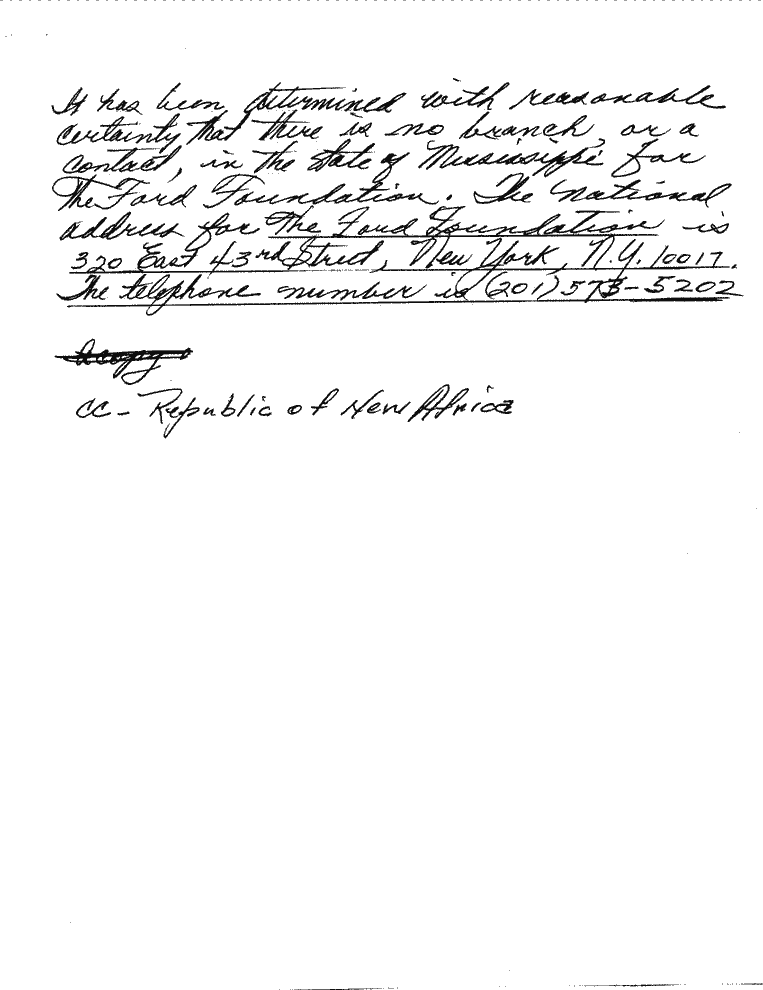 It has been determined with reasonable
certainty that there is no branch, or a
contact, in the state of Mississippi for
the Ford Foundation. The national
address for The Ford Foundation is
320 East 43rd Street, New York, N.Y. 10017.
The telephone number is (201) 573-5202
a copy
CC - Republic of New Africa